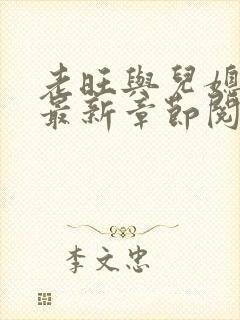 老旺與兒媳
最新章節閱
李文忠